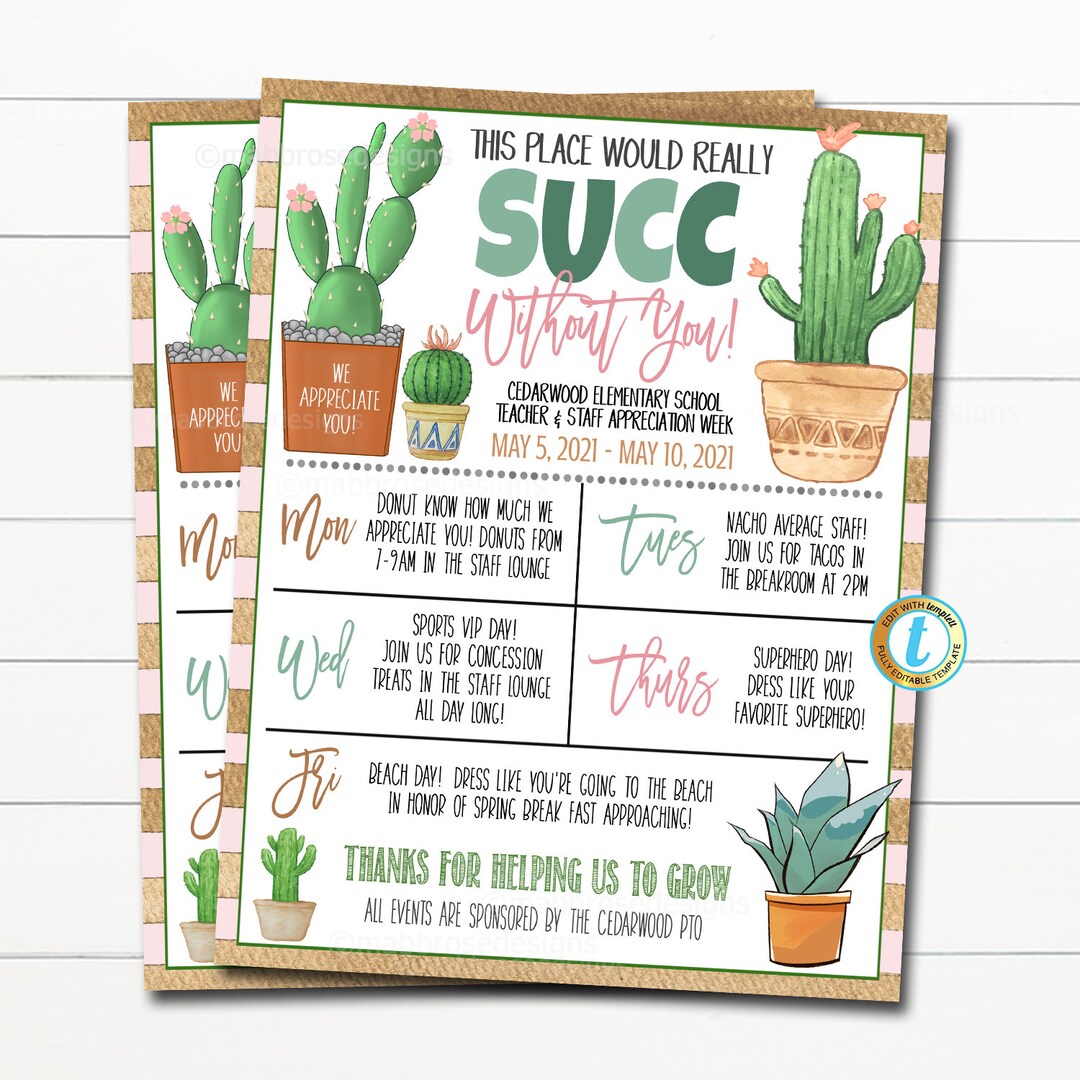 THIS PLACE WOULD REALLY
SUCC
Without You!
WE
APPRECIATE
YOU!
CEDARWOOD ELEMENTARY SCHOOL
TEACHER & STAFF APPRECIATION WEEK
MAY 5, 2021 - MAY 10, 2021
Mon
DONUT KNOW HOW MUCH WE
APPRECIATE YOU! DONUTS FROM
7-9AM IN THE STAFF LOUNGE
Tues
NACHO AVERAGE STAFF!
JOIN US FOR TACOS IN
THE BREAKROOM AT 2PM
Wed
SPORTS VIP DAY!
JOIN US FOR CONCESSION
TREATS IN THE STAFF LOUNGE
ALL DAY LONG!
Thurs
SUPERHERO DAY!
DRESS LIKE YOUR
FAVORITE SUPERHERO!
Fri
BEACH DAY! DRESS LIKE YOU'RE GOING TO THE BEACH
IN HONOR OF SPRING BREAK FAST APPROACHING!
THANKS FOR HELPING US TO GROW
ALL EVENTS ARE SPONSORED BY THE CEDARWOOD PTO
EDIT WITH templett
t
FULLY EDITABLE TEMPLATE
WE
APPREC
YOU
Mo
W
F
©mabbrosedesigns
©mabbrosedesigns
©mabbrosedesigns